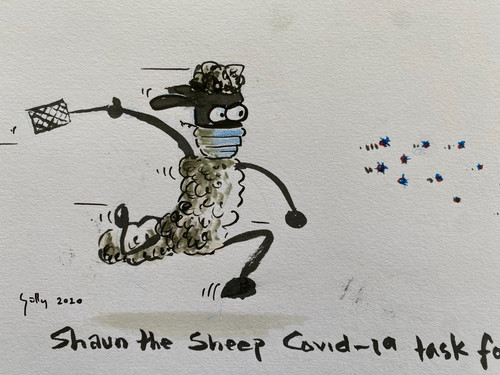 Golly 2020
Shaun the Sheep Covid-19 task fo